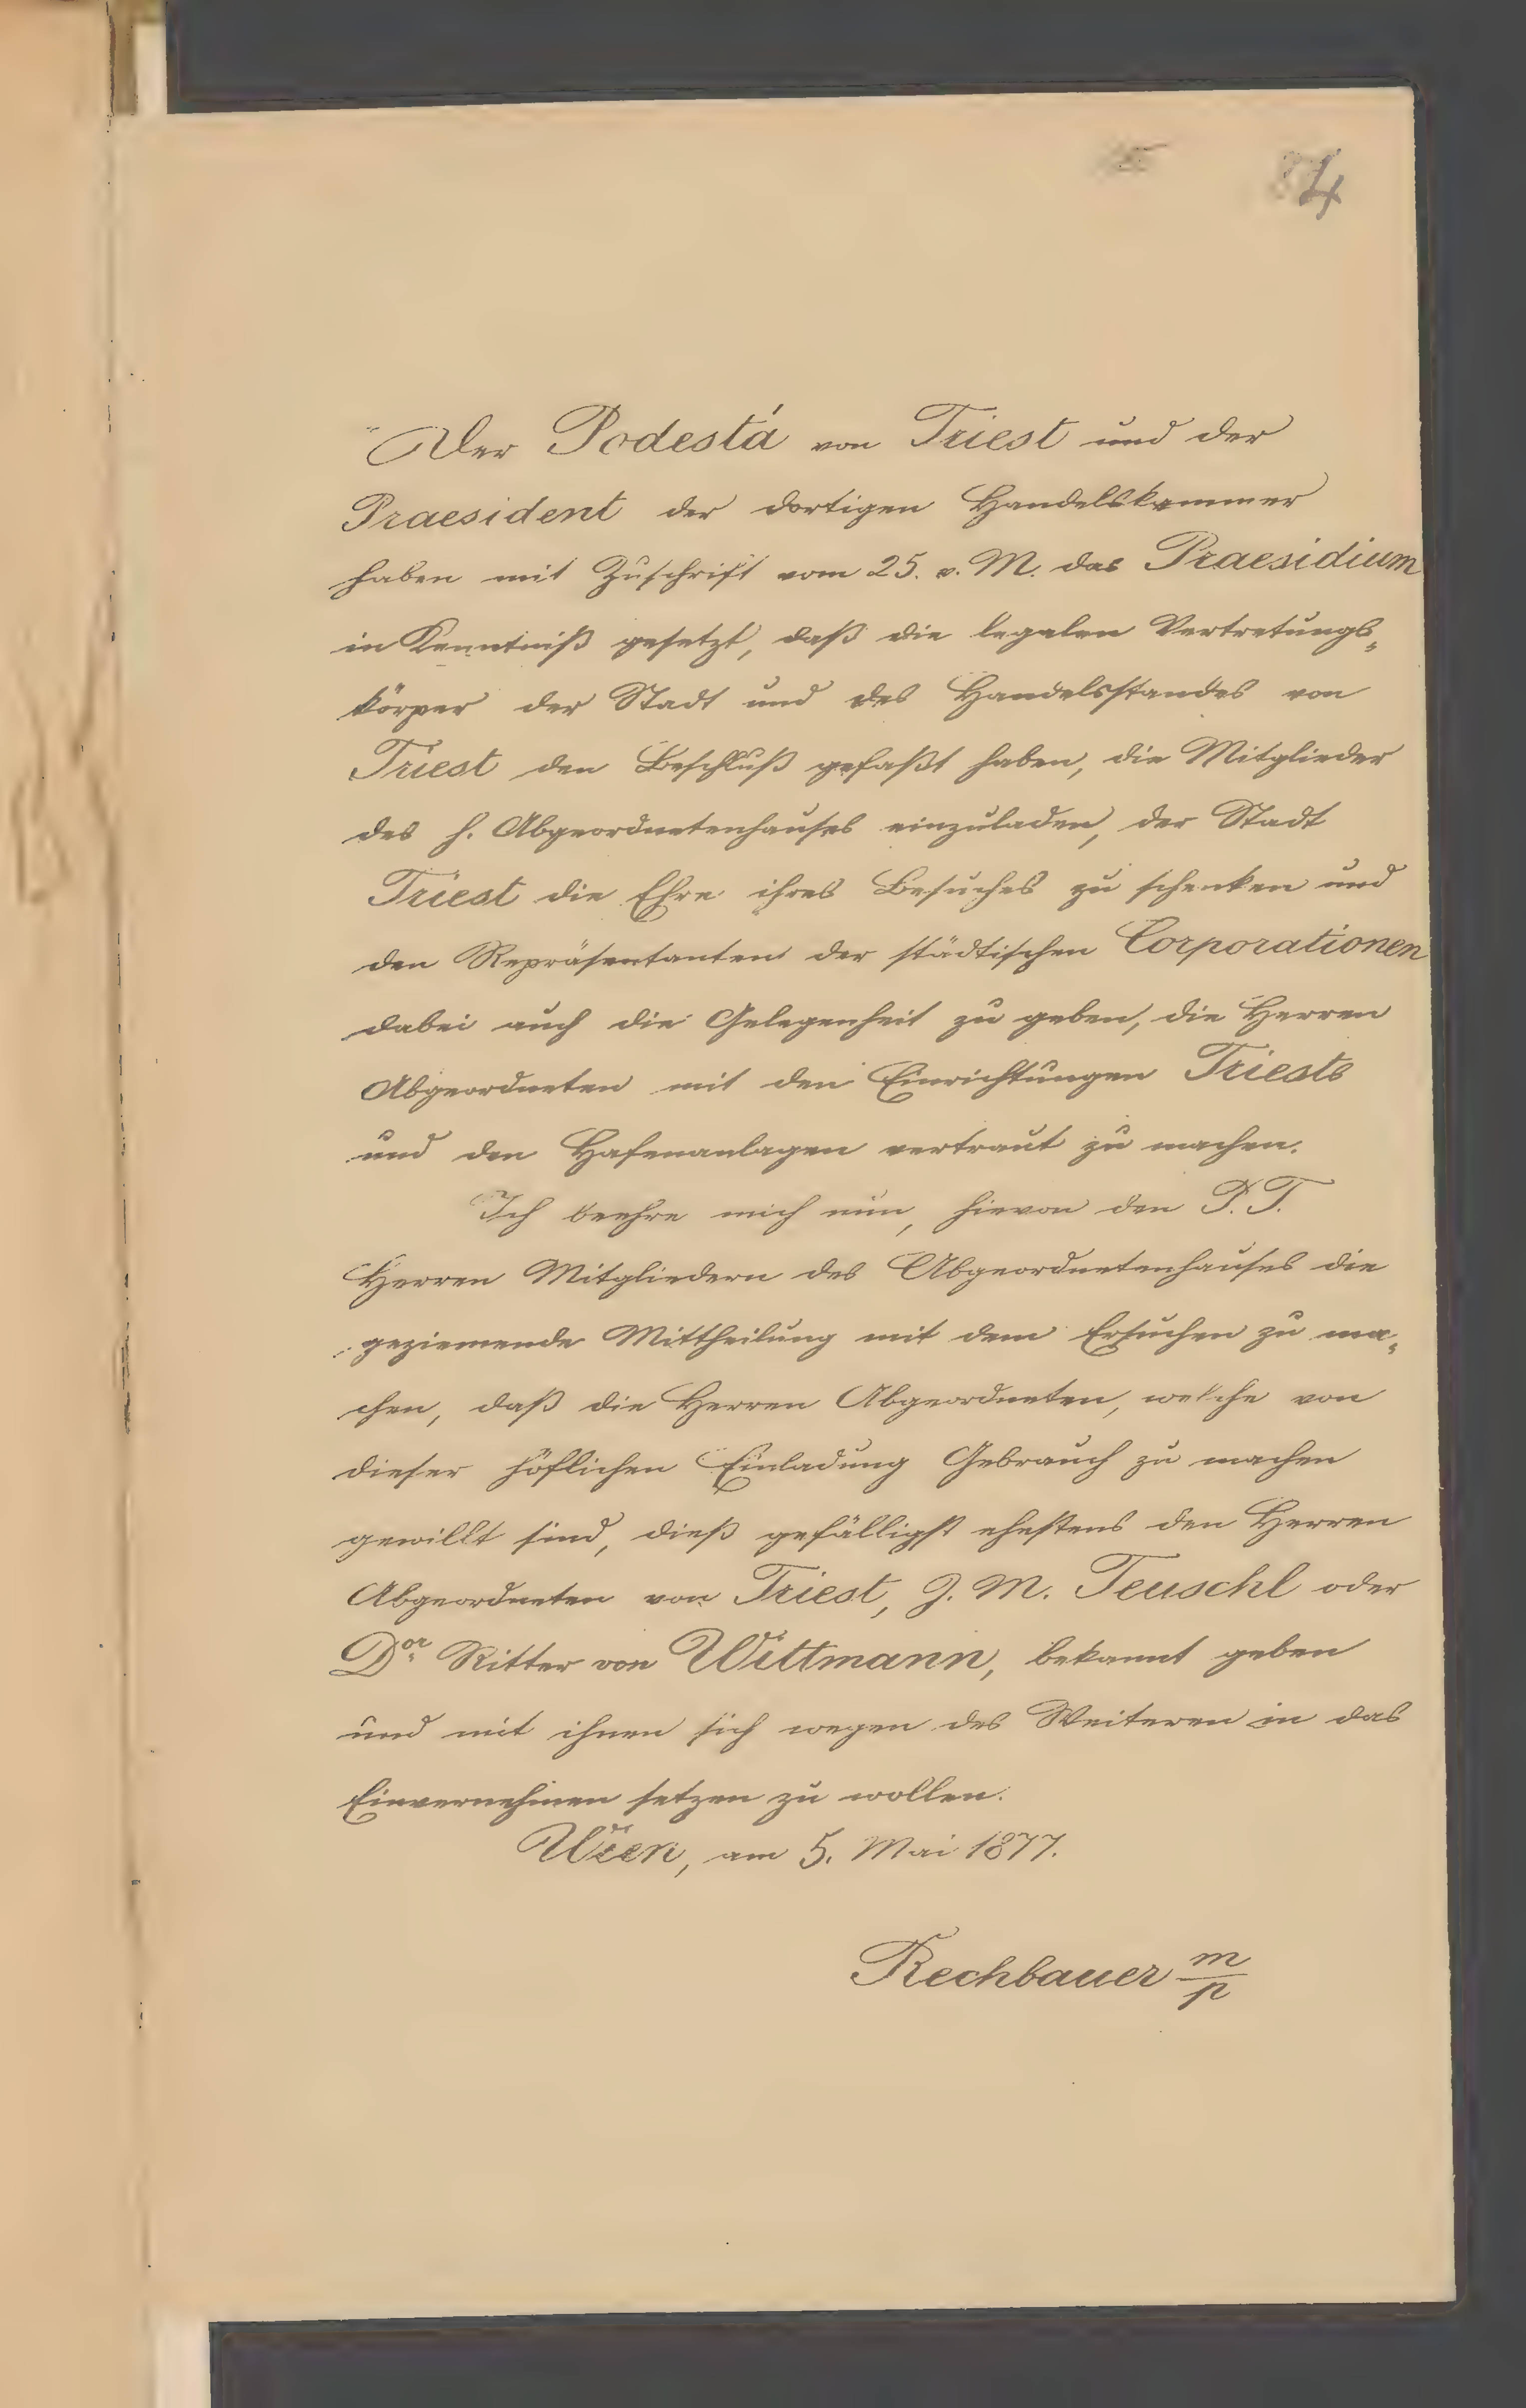 4
Der Podestá von Triest und der
Praesident der dortigen Handelskammer
haben mit Zuschrift vom 25. v. M. das Praesidium
in Kenntniß gesetzt, daß die legalen Vertretungs-
körper der Stadt und des Handelsstandes von
Triest den Beschluß gefaßt haben, die Mitglieder
des h. Abgeordnetenhauses einzuladen, der Stadt
Triest die Ehre ihres Besuches zu schenken und
den Repräsentanten der städtischen Corporationen
dabei auch die Gelegenheit zu geben, die Herren
Abgeordneten mit den Einrichtungen Triests
und den Hafenanlagen vertraut zu machen.
Ich beehre mich nun, hievon den P. T.
Herren Mitgliedern des Abgeordnetenhauses die
geziemende Mittheilung mit dem Ersuchen zu ma-
chen, daß die Herren Abgeordneten, welche von
dieser höflichen Einladung Gebrauch zu machen
gewillt sind, dieß gefälligst ehestens den Herren
Abgeordneten von Triest, J. M. Teuschl oder
Dor. Ritter von Wittmann, bekannt geben
und mit ihnen sich wegen des Weiteren in das
Einvernehmen setzen zu wollen.
Wien, am 5. Mai 1877.
Rechbauer m/p